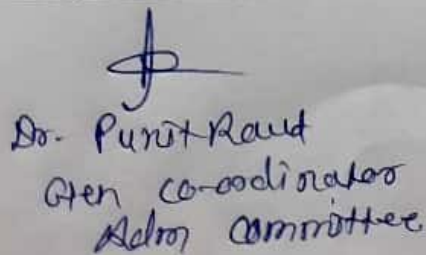 Dr. Punit Raut
Gen Co-ordinator
Admn Committee